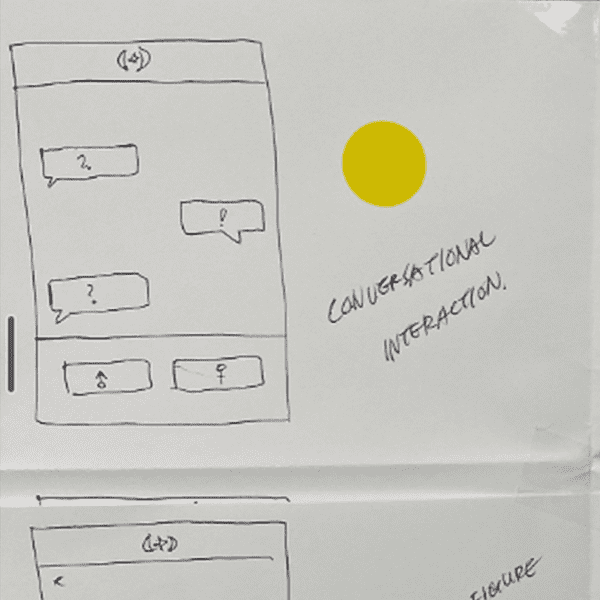 ?
!
?
CONVERSATIONAL
INTERACTION.
FIGURE